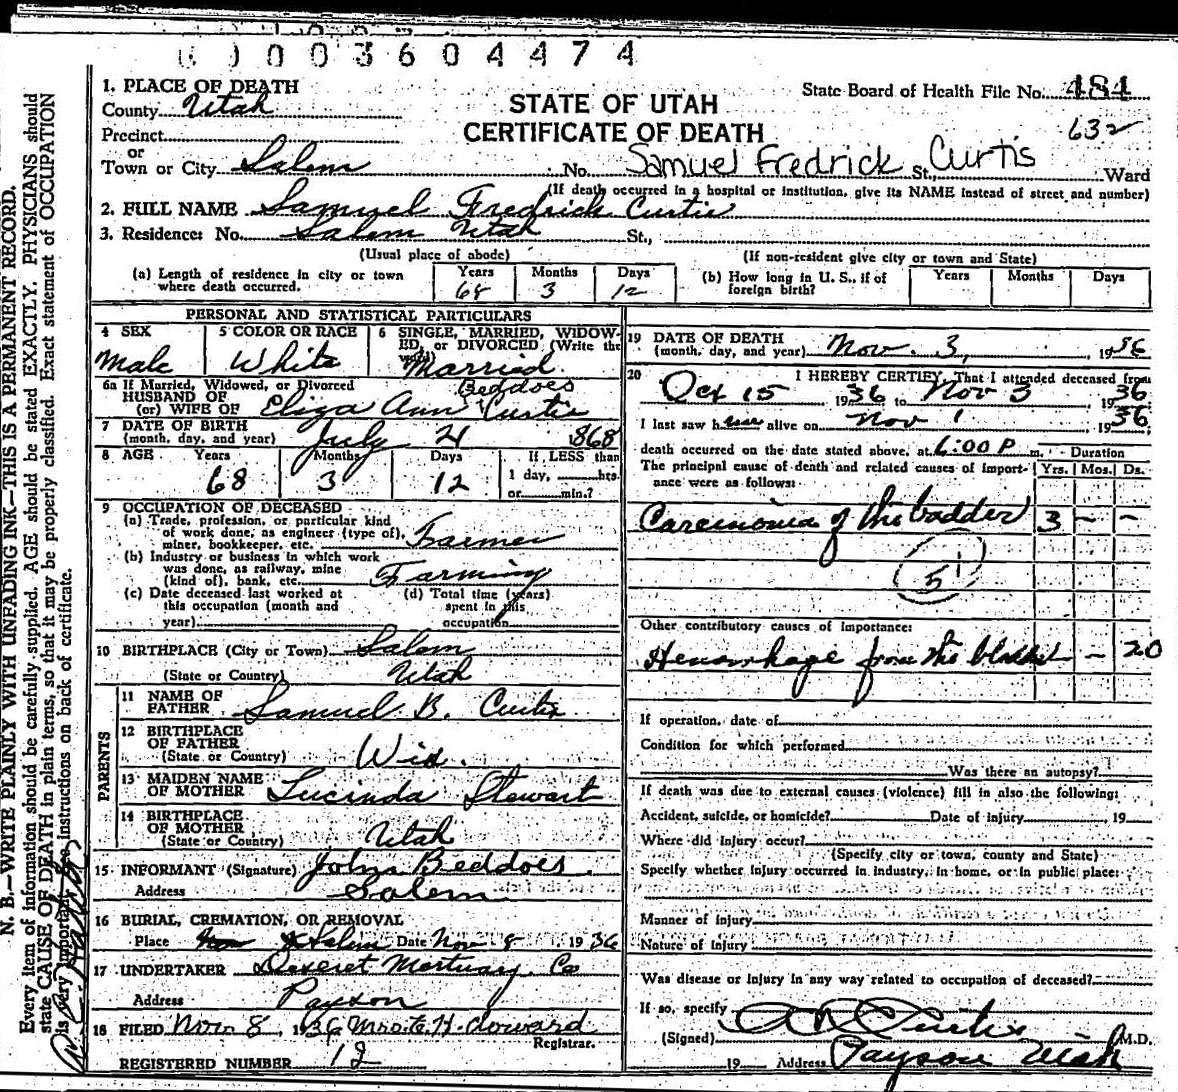 0003604474
1. PLACE OF DEATH
State Board of Health File No. 484
County Utah
STATE OF UTAH
632
CERTIFICATE OF DEATH
Precinct
or
Town or City Salem No. Samuel Fredrick St., Curtis Ward
(If death occurred in a hospital or institution, give its NAME instead of street and number)
2. FULL NAME Samuel Fredrick Curtis
3. Residence: No. Salem Utah St.,
(Usual place of abode) (If non-resident give city or town and State)
(a) Length of residence in city or town where death occurred. Years 68 Months 3 Days 12
(b) How long in U. S., if of foreign birth? Years Months Days
PERSONAL AND STATISTICAL PARTICULARS
4 SEX Male
5 COLOR OR RACE White
6 SINGLE, MARRIED, WIDOWED, or DIVORCED (Write the word) Married
6a If Married, Widowed, or Divorced
HUSBAND OF
(or) WIFE OF Eliza Ann Beddoes Curtis
7 DATE OF BIRTH
(month, day, and year) July 21 1868
8 AGE Years 68 Months 3 Days 12 If LESS than 1 day, hrs. or min.?
9 OCCUPATION OF DECEASED
(a) Trade, profession, or particular kind of work done, as engineer (type of), miner, bookkeeper, etc. Farmer
(b) Industry or business in which work was done, as railway, mine (kind of), bank, etc. Farming
(c) Date deceased last worked at this occupation (month and year)
(d) Total time (years) spent in this occupation
10 BIRTHPLACE (City or Town) Salem
(State or Country) Utah
PARENTS
11 NAME OF FATHER Samuel B. Curtis
12 BIRTHPLACE OF FATHER
(State or Country) Wis.
13 MAIDEN NAME OF MOTHER Lucinda Stewart
14 BIRTHPLACE OF MOTHER
(State or Country) Utah
15 INFORMANT (Signature) John Beddoes
Address Salem
16 BURIAL, CREMATION, OR REMOVAL
Place Salem Date Nov. 8 1936
17 UNDERTAKER Deseret Mortuary Co
Address Payson
18 FILED Nov. 8, 1936
Registrar.
REGISTERED NUMBER 12
19 DATE OF DEATH
(month, day, and year) Nov. 3, 1936
20 I HEREBY CERTIFY, That I attended deceased from
Oct 15 1936 to Nov 3, 1936
I last saw him alive on Nov 1 1936;
death occurred on the date stated above, at 6:00 P m. Duration
The principal cause of death and related causes of importance were as follows: Yrs. Mos. Ds.
Carcinoma of the badder 3 – –
51
Other contributory causes of importance:
Hemorrhage from the bladder – 20
If operation, date of
Condition for which performed
Was there an autopsy?
If death was due to external causes (violence) fill in also the following:
Accident, suicide, or homicide? Date of injury , 19
Where did injury occur?
(Specify city or town, county and State)
Specify whether injury occurred in industry, in home, or in public place:
Manner of injury
Nature of injury
Was disease or injury in any way related to occupation of deceased?
If so, specify
(Signed) Curtis M.D.
19 Address Payson Utah
N. B.—WRITE PLAINLY WITH UNFADING INK—THIS IS A PERMANENT RECORD.
Every item of information should be carefully supplied. AGE should be stated EXACTLY. PHYSICIANS should
state CAUSE OF DEATH in plain terms, so that it may be properly classified. Exact statement of OCCUPATION
is very important. See instructions on back of certificate.